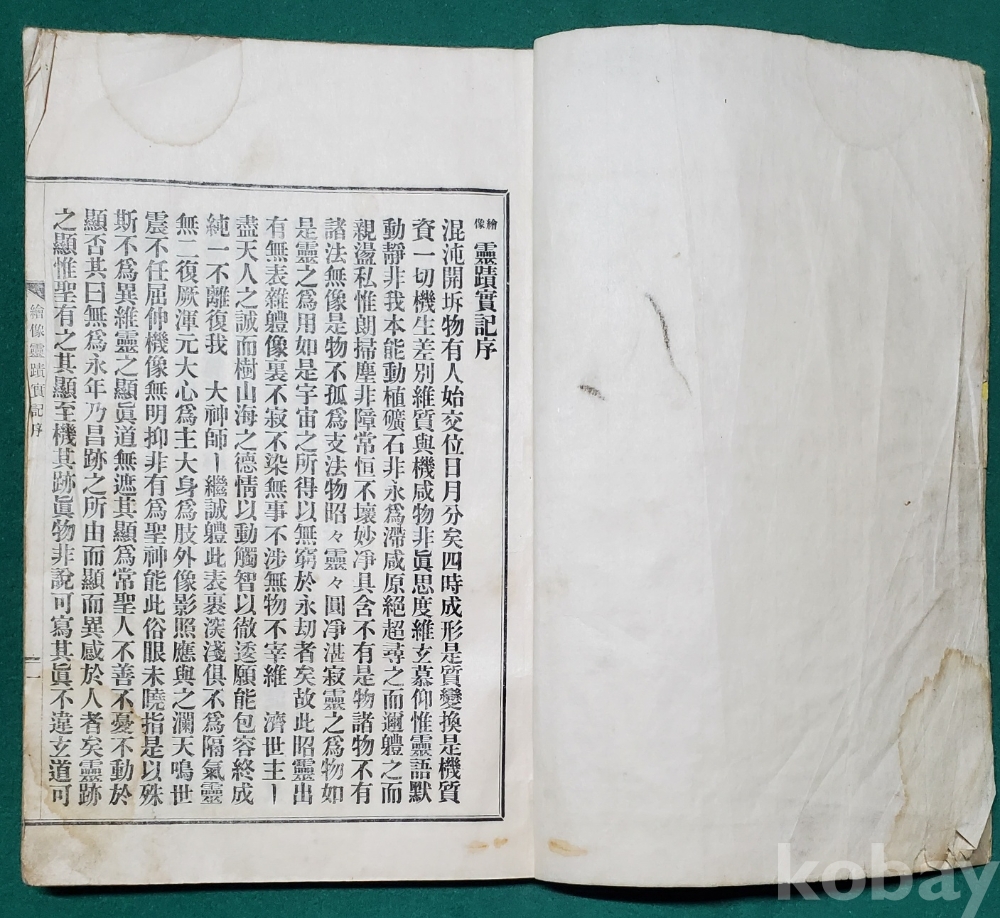 繪像 靈蹟實記序
混沌開坼物有人始交位日月分矣四時成形是質變換是機質
資一切機生差別維質與機咸物非眞思度維玄慕仰惟靈語默
動靜非我本能動植礦石非永爲滯咸原絕超尋之而邇軆之而
親盪私惟朗掃塵非障常恒不壞妙凈具含不有是物諸物不有
諸法無像是物不孤爲支法物昭々靈々圓凈湛寂靈之爲物如
是靈之爲用如是宇宙之所得以無窮於永劫者矣故此昭靈出
有無表雜軆像裏不寂不染無事不涉無物不宰維 濟世主ㅣ
盡天人之誠而樹山海之德情以動觸智以徹逶願能包容終成
純一不離復我 大神師ㅣ繼誠軆此表裏淡淺俱不爲隔氣靈
無二復厥渾元大心爲主大身爲肢外像影照應與之瀾天鳴世
震不任屈伸機像無明抑非有爲聖神能此俗眼未曉指是以殊
斯不爲異維靈之顯眞道無遮其顯爲常聖人不善不憂不動於
顯否其曰無爲永年乃昌跡之所由而顯而異感於人者矣靈跡
之顯惟聖有之其顯至機其跡眞物非說可寫其眞不違玄道可
繪像靈蹟實記序
一
kobay